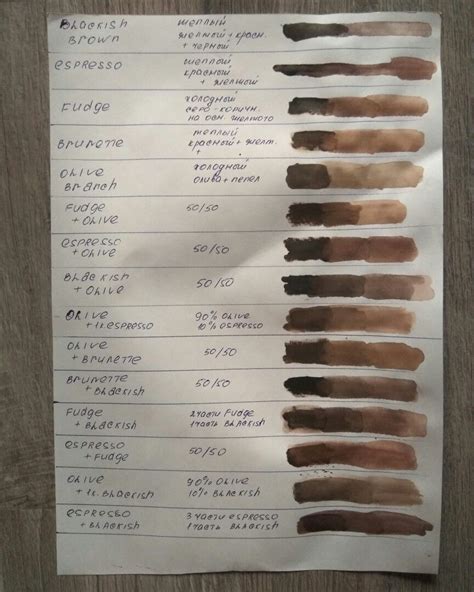 Blackish теплый
Brown желтый + красн.
+ черный
espresso теплый
красный
+ желтый
Fudge холодный
серо-коричн.
на осн. желтого
Brunette теплый
красный + желт.
+
Olive холодный
Branch олива + пепел
Fudge 50/50
+ Olive
espresso 50/50
+ Olive
Blackish 50/50
+ Olive
Olive 90% Olive
+ 1к espresso 10% espresso
Olive 50/50
+ Brunette
Brunette 50/50
+ Blackish
Fudge 2 части Fudge
+ Blackish 1 часть Blackish
espresso 50/50
+ Fudge
Olive 90% Olive
+ 1к. Blackish 10% Blackish
espresso 3 части espresso
+ Blackish 1 часть Blackish